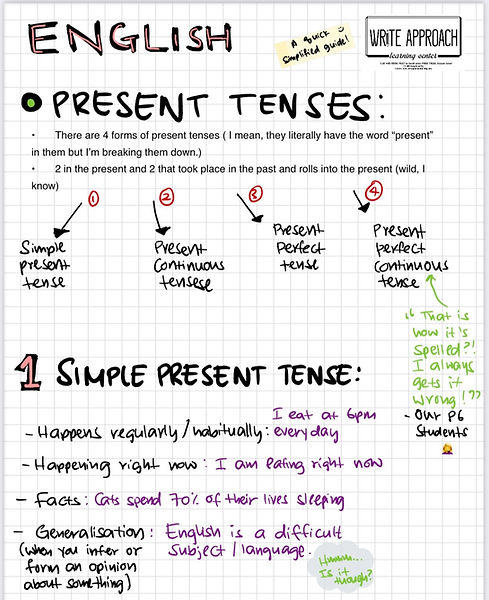 ENGLISH
A quick
simplified guide!
WRITE APPROACH
learning center
PRESENT TENSES:
• There are 4 forms of present tenses ( I mean, they literally have the word “present”
in them but I’m breaking them down.)
• 2 in the present and 2 that took place in the past and rolls into the present (wild, I
know)
1 2 3 4
Simple
present
tense
Present
Continuous
tensese
Present
Perfect
tense
Present
perfect
continuous
tense
“ That is
how it's
spelled?!
I always
gets it
wrong!”
- Our P6
Students
1 SIMPLE PRESENT TENSE:
- Happens regularly/habitually: I eat at 6pm
everyday
- Happening right now: I am eating right now
- Facts: Cats spend 70% of their lives sleeping
- Generalisation: English is a difficult
subject/language.
(when you infer or
form an opinion
about something)
Hmmm...
Is it
though?